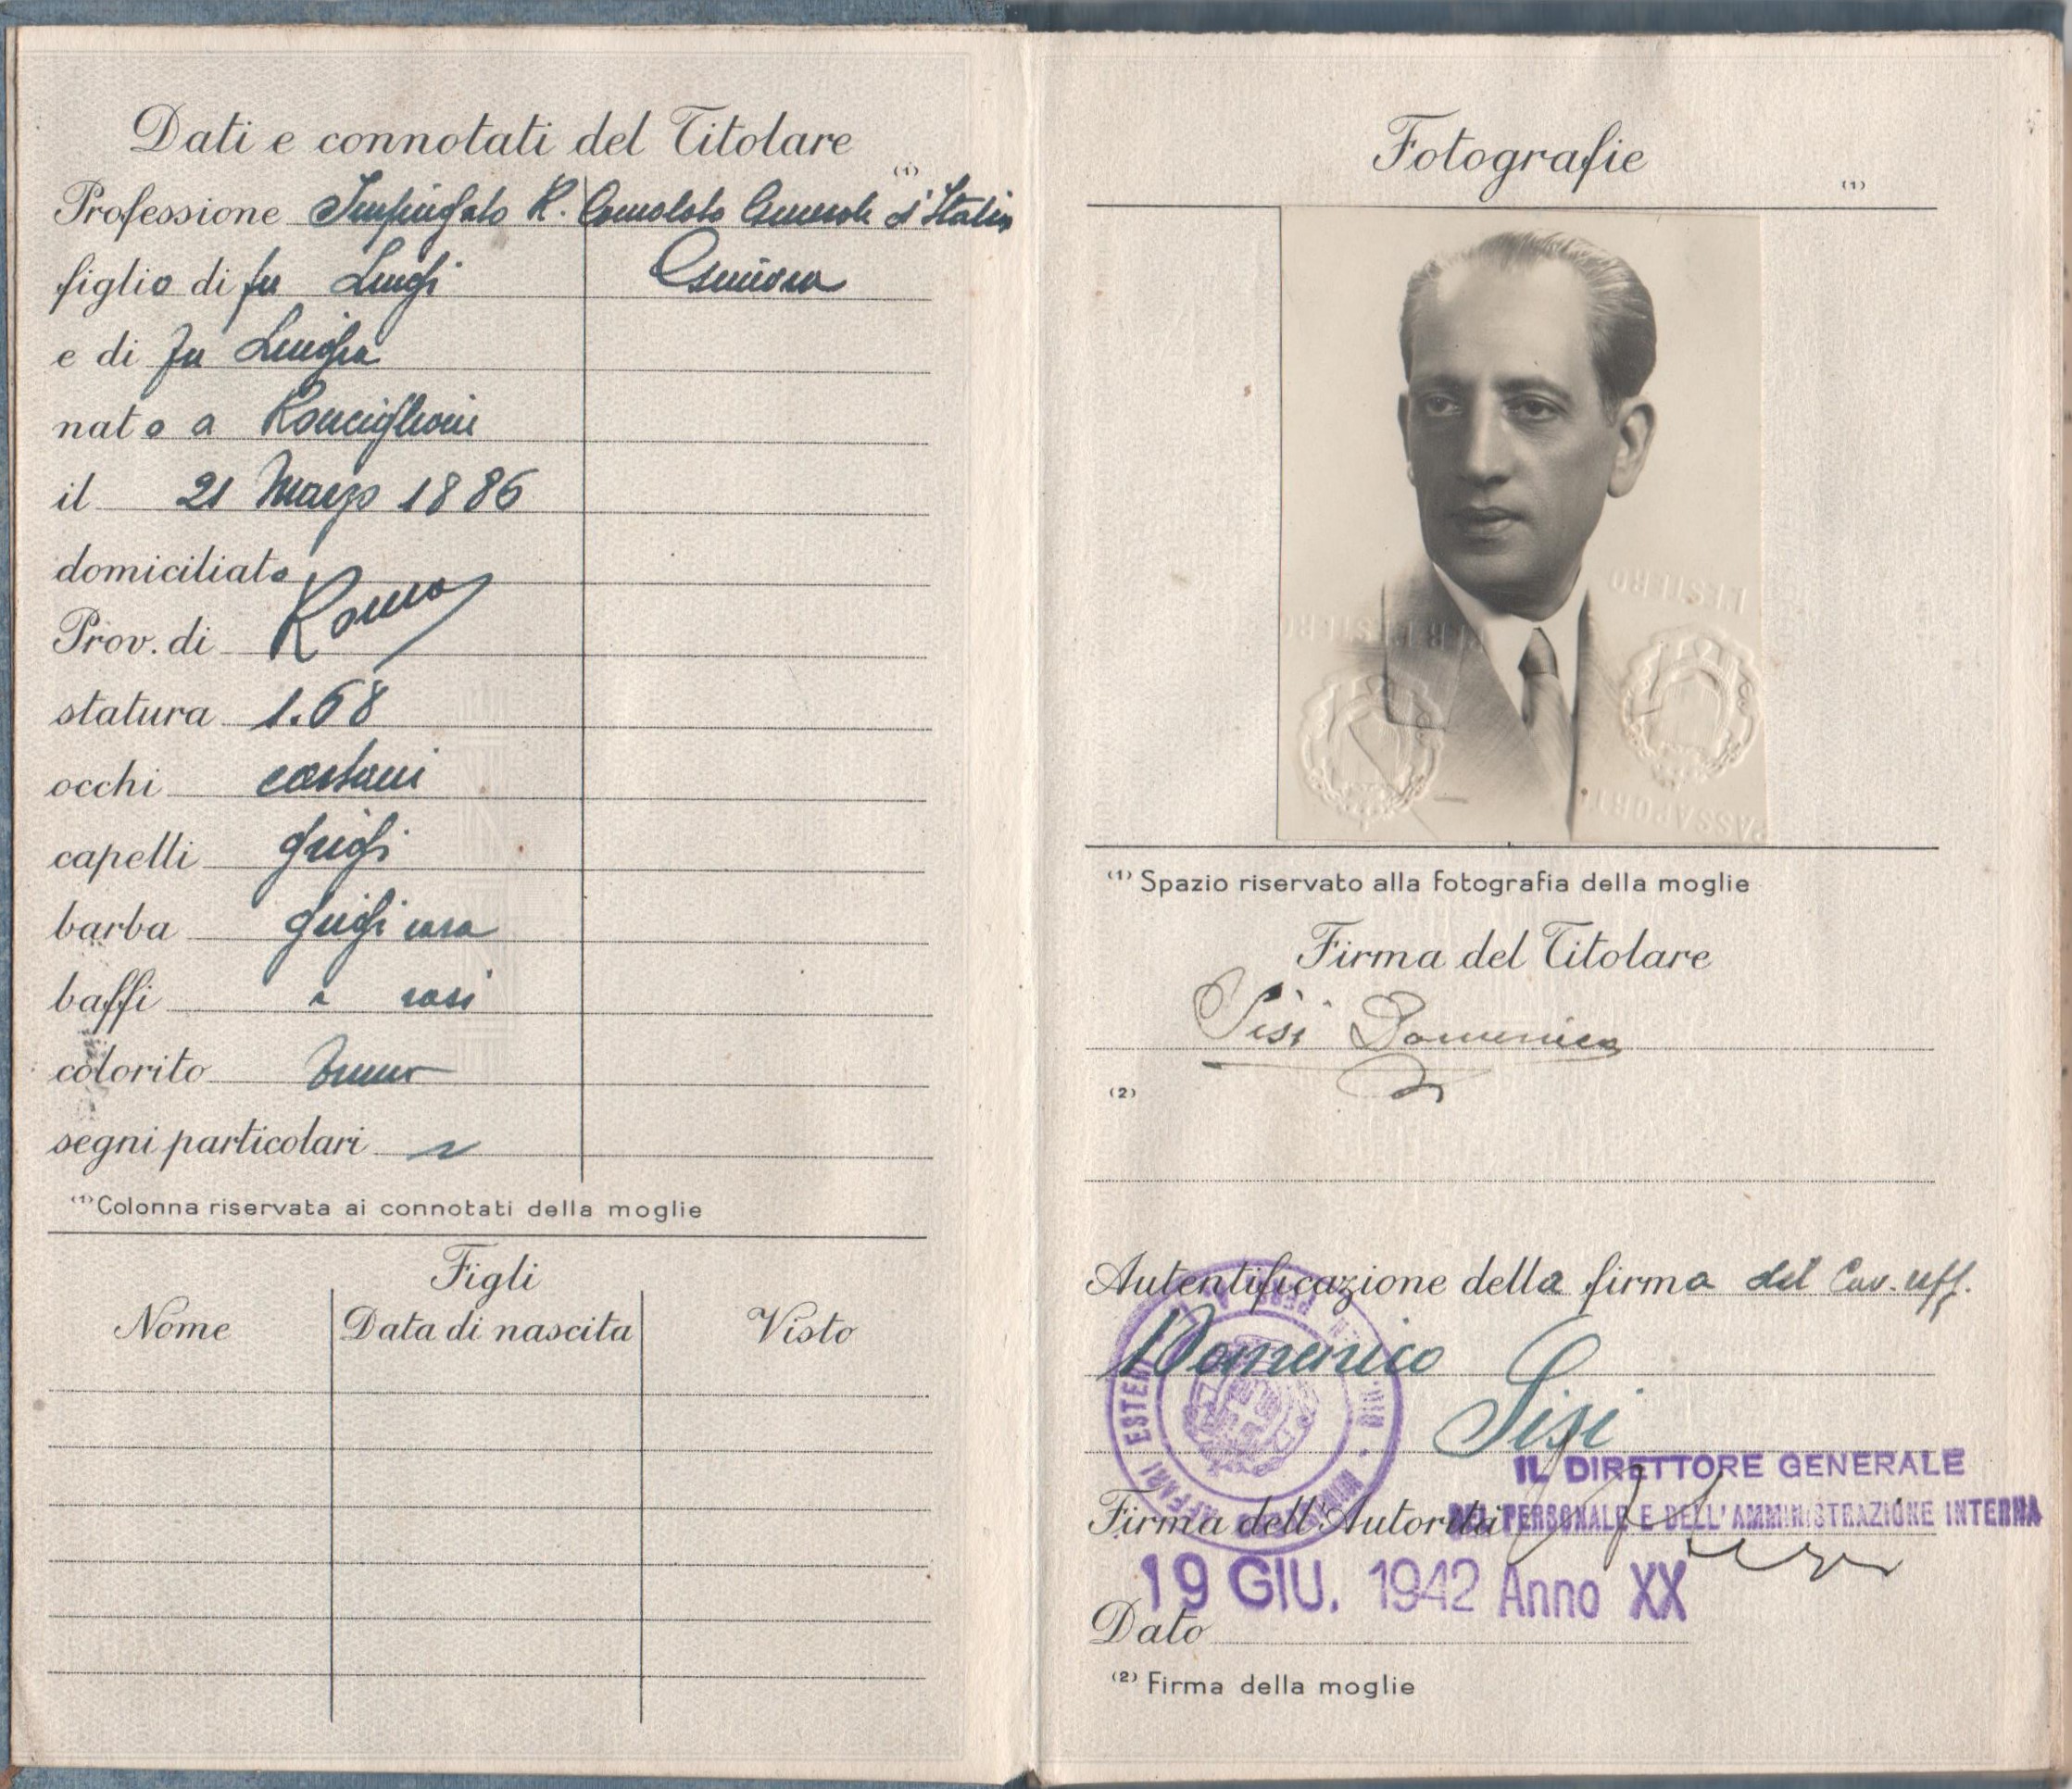 Dati e connotati del Titolare
(1)
Professione Impiegato R. Consolato Generale d'Italia
figlio di fu Luigi Ginevra
e di fu Luigia
nato a Ronciglione
il 21 Marzo 1886
domiciliato
Prov. di Roma
statura 1.68
occhi castani
capelli grigi
barba grigi rasa
baffi " rasi
colorito bruno
segni particolari
(1) Colonna riservata ai connotati della moglie
Figli
Nome Data di nascita Visto
Fotografie
(1)
PASSAPORTI
(1) Spazio riservato alla fotografia della moglie
Firma del Titolare
Sisi Domenico
(2)
Autentificazione della firma del Cav. Uff.
Domenico
Sisi
AFFARI ESTERI
IL DIRETTORE GENERALE
Firma dell'Autorità DEL PERSONALE E DELL'AMMINISTRAZIONE INTERNA
19 GIU. 1942 Anno XX
Dato
(2) Firma della moglie